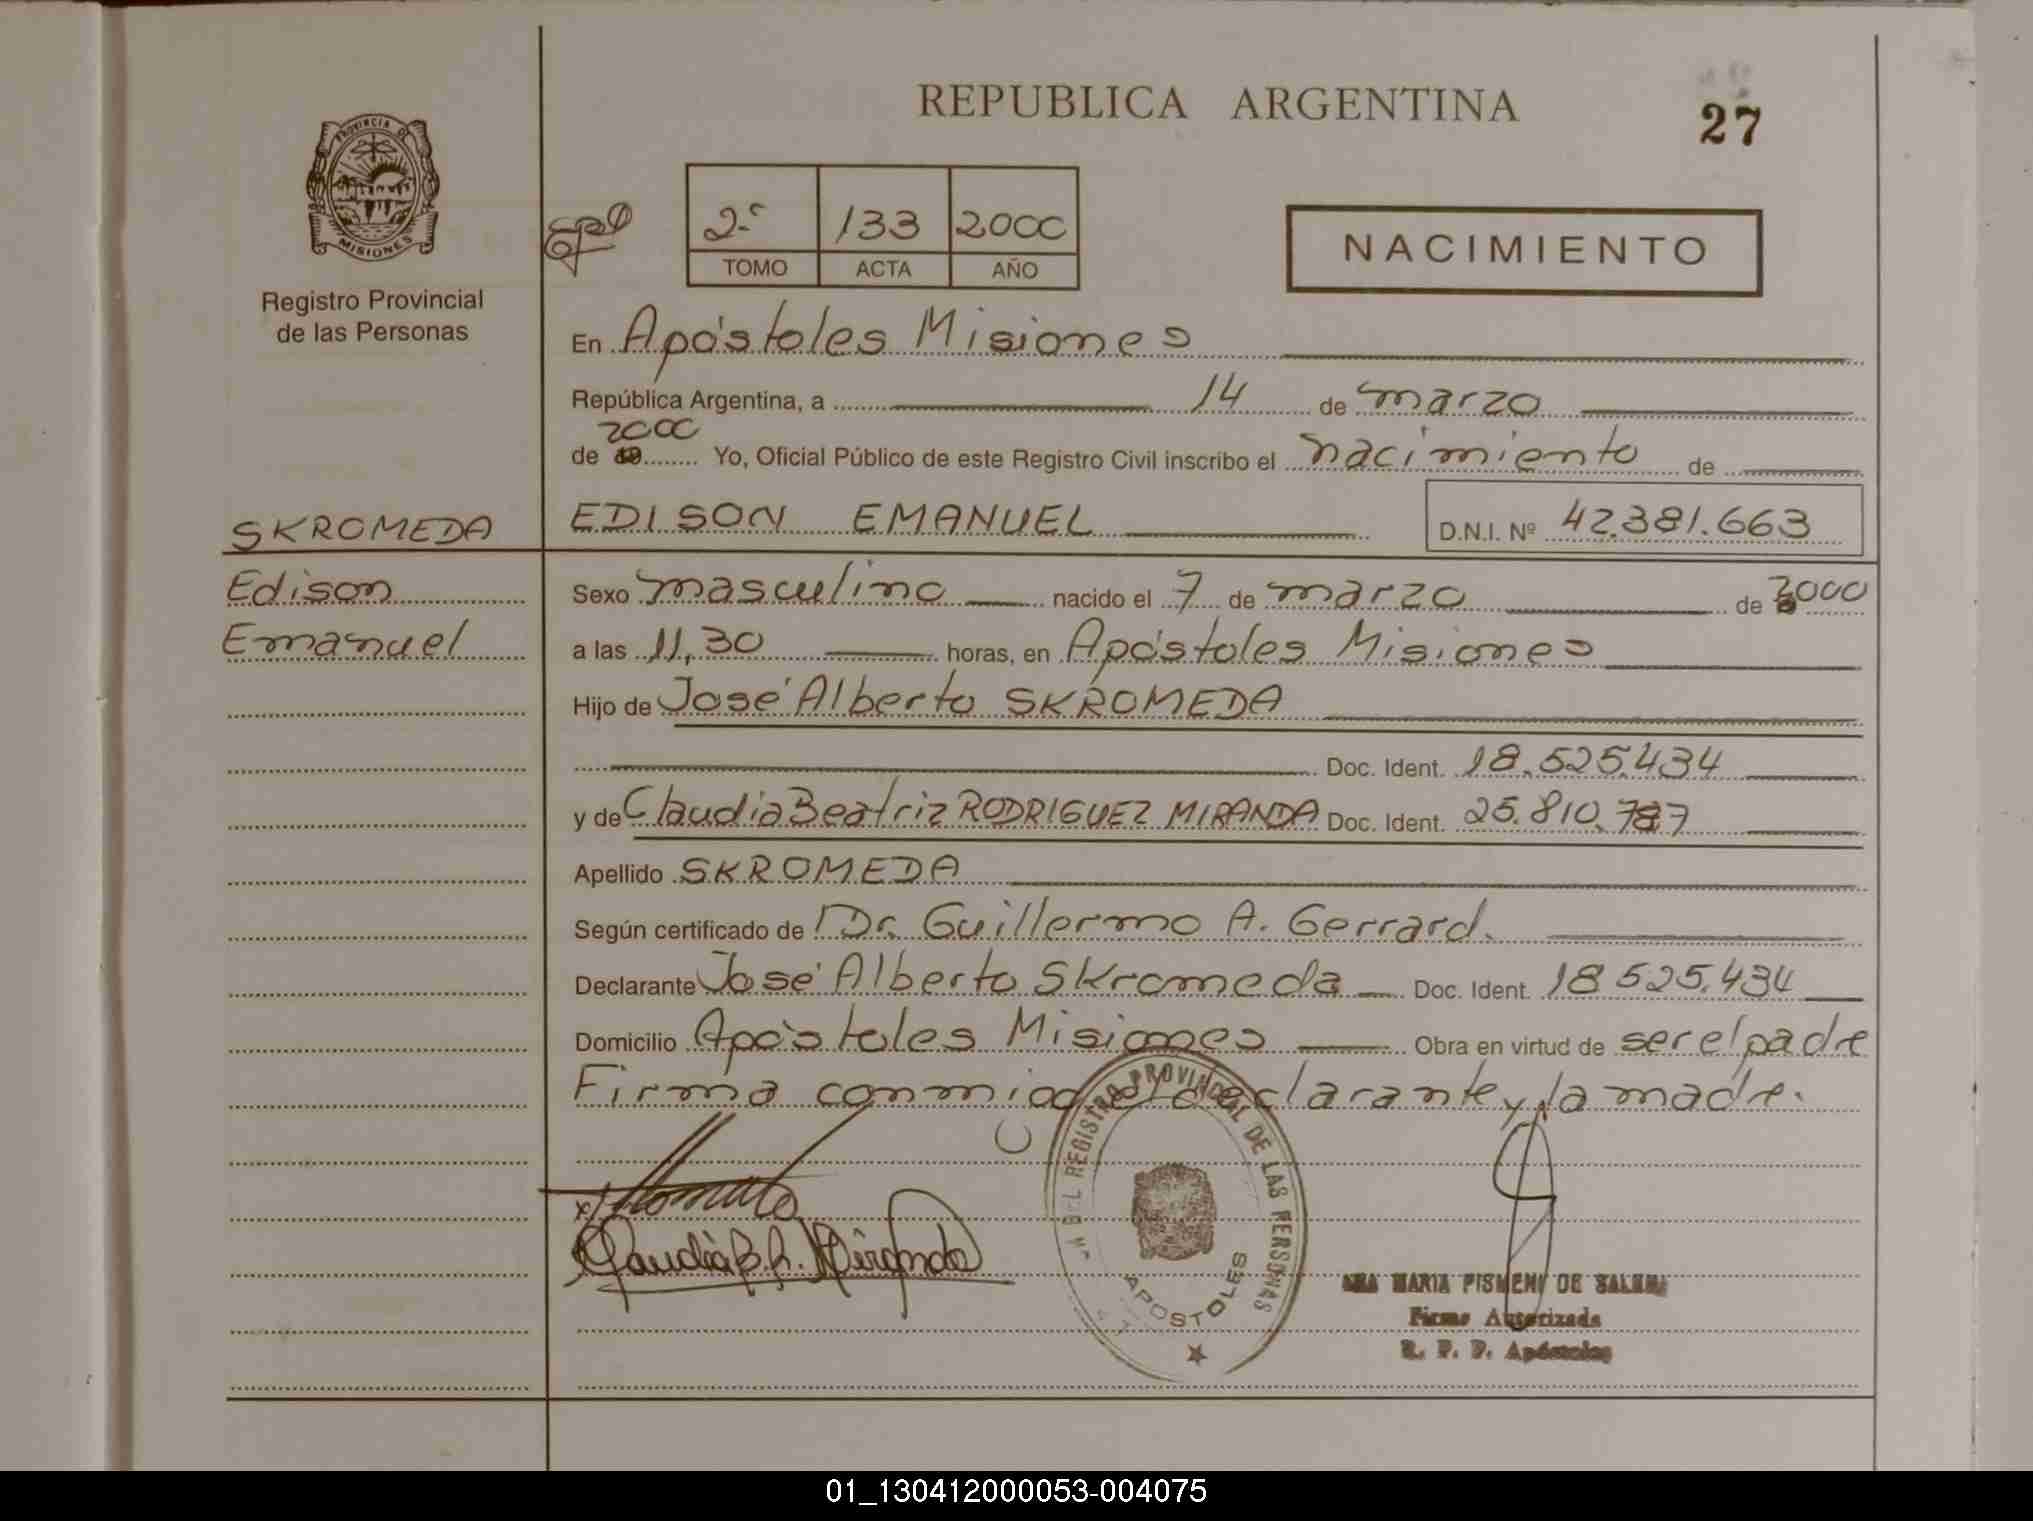 REPUBLICA ARGENTINA
27
PROVINCIA DE
MISIONES
Registro Provincial
de las Personas
2º 133 2000
TOMO ACTA AÑO
NACIMIENTO
En Apóstoles Misiones
República Argentina, a 14 de marzo
2000
de 19 Yo, Oficial Público de este Registro Civil inscribo el nacimiento de
SKROMEDA
Edison
Emanuel
EDISON EMANUEL D.N.I. Nº 42.381.663
Sexo masculino nacido el 7 de marzo de 2000
a las 11,30 horas, en Apóstoles Misiones
Hijo de José Alberto SKROMEDA
Doc. Ident. 18.525.434
y de Claudia Beatriz RODRIGUEZ MIRANDA Doc. Ident. 25.810.787
Apellido SKROMEDA
Según certificado de Dr. Guillermo A. Gerrard.
Declarante José Alberto Skromeda Doc. Ident. 18.525.434
Domicilio Apóstoles Misiones Obra en virtud de ser el padre
Firma conmigo el declarante y la madre.
DEL REGISTRO PROVINCIAL DE LAS PERSONAS
APOSTOLES
Claudia B. R. Miranda
ANA MARIA PISMENI DE SALUM
Firma Autorizada
R. P. P. Apóstoles
01_130412000053-004075